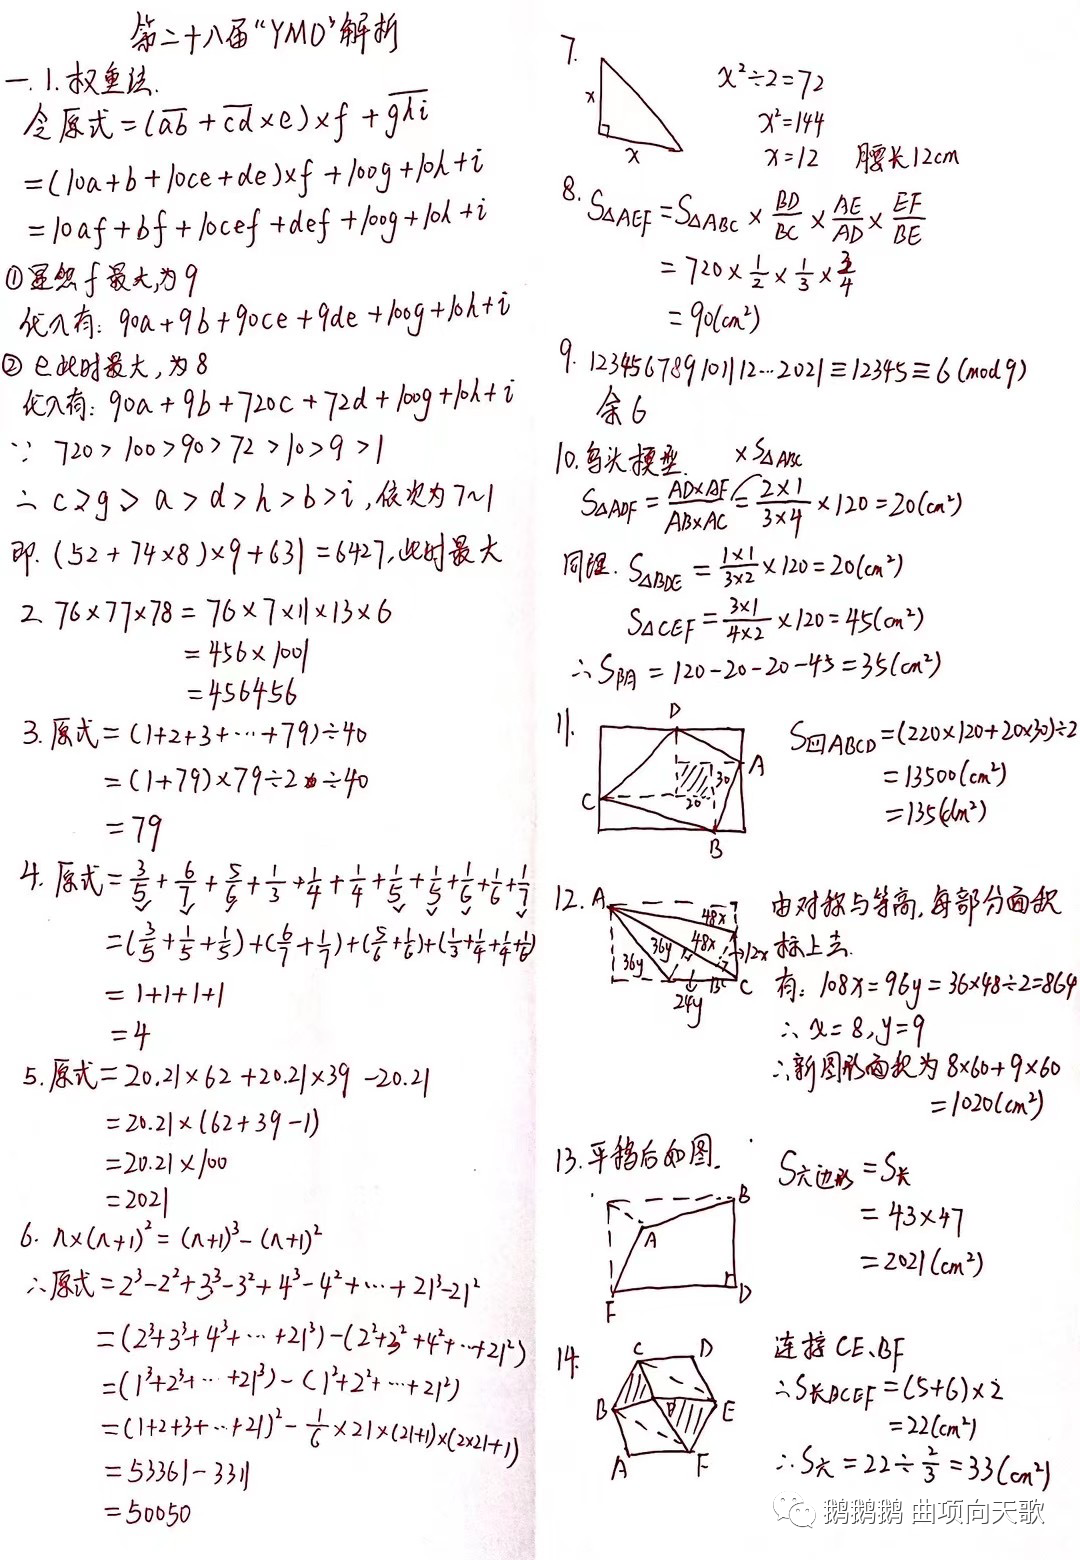 第二十八届“YMO”解析
一.1.权重法.
令原式=(ab+cd×e)×f+ghi
=(10a+b+10ce+de)×f+100g+10h+i
=10af+bf+10cef+def+100g+10h+i
①显然f最大,为9
代入有:90a+9b+90ce+9de+100g+10h+i
②e此时最大,为8
代入有:90a+9b+720c+72d+100g+10h+i
∵ 720>100>90>72>10>9>1
∴ c>g>a>d>h>b>i,依次为7~1
即.(52+74×8)×9+631=6427,此时最大
2. 76×77×78=76×7×11×13×6
=456×1001
=456456
3.原式=(1+2+3+…+79)÷40
=(1+79)×79÷2÷40
=79
4.原式=3/5+6/7+5/6+1/3+1/4+1/4+1/5+1/5+1/6+1/6+1/7
=(3/5+1/5+1/5)+(6/7+1/7)+(5/6+1/6)+(1/3+1/4+1/4+1/6)
=1+1+1+1
=4
5.原式=20.21×62+20.21×39-20.21
=20.21×(62+39-1)
=20.21×100
=2021
6. n×(n+1)²=(n+1)³-(n+1)²
∴原式=2³-2²+3³-3²+4³-4²+…+21³-21²
=(2³+3³+4³+…+21³)-(2²+3²+4²+…+21²)
=(1³+2³+…+21³)-(1²+2²+…+21²)
=(1+2+3+…+21)²-1/6×21×(21+1)×(2×21+1)
=53361-3311
=50050
7.
x
x
x²÷2=72
x²=144
x=12 腰长12cm
8. S△AEF=S△ABC×BD/BC×AE/AD×EF/BE
=720×1/2×1/3×3/4
=90(cm²)
9. 123456789101112…2021≡12345≡6(mod9)
余6
10.鸟头模型. ×S△ABC
S△ADF=AD×AF/AB×AC=2×1/3×4×120=20(cm²)
同理. S△BDE=1×1/3×2×120=20(cm²)
S△CEF=3×1/4×2×120=45(cm²)
∴S阴=120-20-20-45=35(cm²)
11.
D
A
30
20
C
B
S四ABCD=(220×120+20×30)÷2
=13500(cm²)
=135(dm²)
12.
A
48x
48x
12x
36y
36y
24y
B
C
由对称与等高,每部分面积
标上去.
有:108x=96y=36×48÷2=864
∴x=8,y=9
∴新图形面积为8×60+9×60
=1020(cm²)
13.平移后如图.
B
A
F
D
S六边形=S长
=43×47
=2021(cm²)
14.
C
D
B
P
E
A
F
连接CE、BF
∴S长BCEF=(5+6)×2
=22(cm²)
∴S六=22÷2/3=33(cm²)
鹅鹅鹅 曲项向天歌